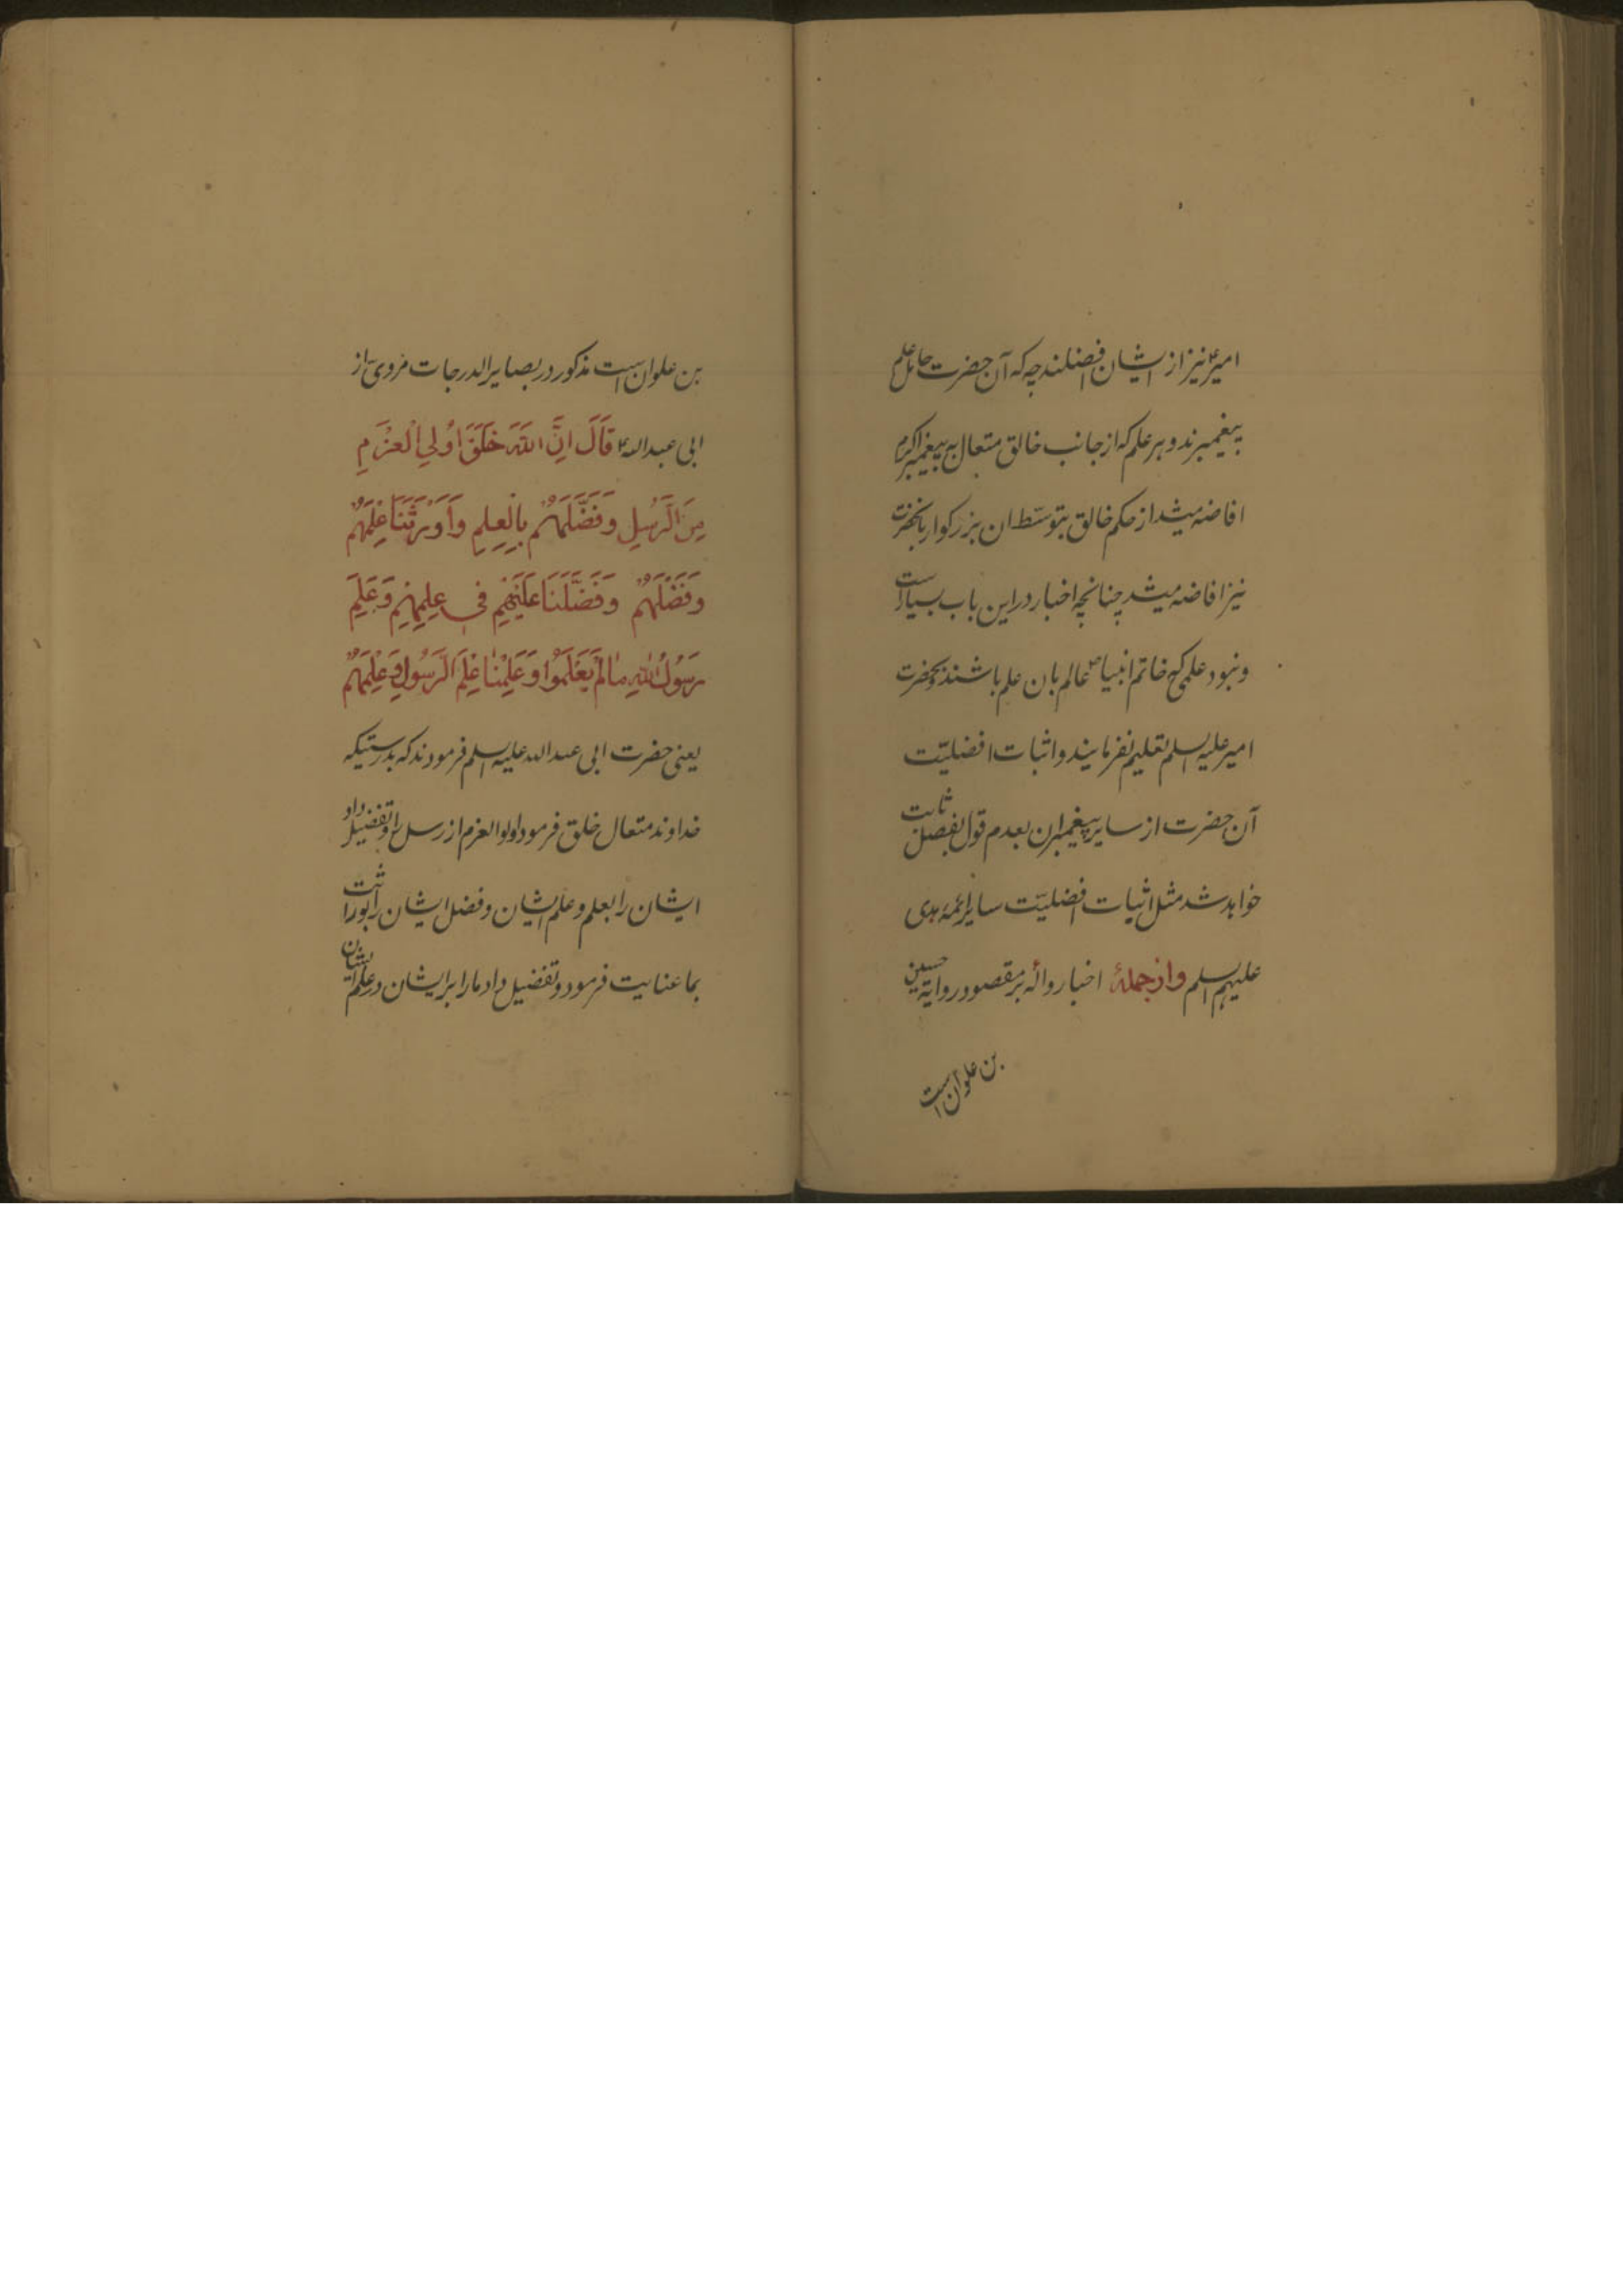 امیر ع نیز از ایشان افضلند چه که آن حضرت حامل علم
پیغمبرند و هر علم که از جانب خالق متعال به پیغمبر اکرم
افاضه میشد از حکم خالق بتوسّط ان بزرکوار بانحضرت
نیز افاضه میشد چنانچه اخبار در این باب بسیار است
و نبود علمی که خاتم انبیا ص عالم بان علم باشند و بحضرت
امیر علیه السلم تعلیم نفرمایند و اثبات افضلیّت
آن حضرت از سایر پیغمبران بعدم قول بفصل ثابت
خواهد شد مثل اثبات افضلیّت سایر ائمه هدی
علیهم السلم و از جملهٔ اخبار دالّه بر مقصود روایة حسین
بن علوان است
بن علوان است مذکور در بصایر الدرجات مروی از
ابی عبد الله ع قَالَ اِنَّ اللهَ خَلَقَ اُولِي الْعَزْمِ
مِنَ الرُّسُلِ وَفَضَّلَهُمْ بِالْعِلْمِ وَاَوْرَثَنَا عِلْمَهُمْ
وَفَضْلَهُمْ وَفَضَّلَنَا عَلَيْهِمْ فِي عِلْمِهِمْ وَعَلِمَ
رَسُولُ اللهِ مَا لَمْ يَعْلَمُوا وَعَلِمْنَا عِلْمَ الرَّسُولِ وَعِلْمَهُمْ
یعنی حضرت ابی عبد الله علیه السلم فرمودند که بدرستیکه
خداوند متعال خلق فرمود اولو العزم از رسل را و تفضیل داد
ایشان را بعلم و علم ایشان و فضل ایشان را بوراثت
بما عنایت فرمود و تفضیل داد ما را بر ایشان در علم ایشان